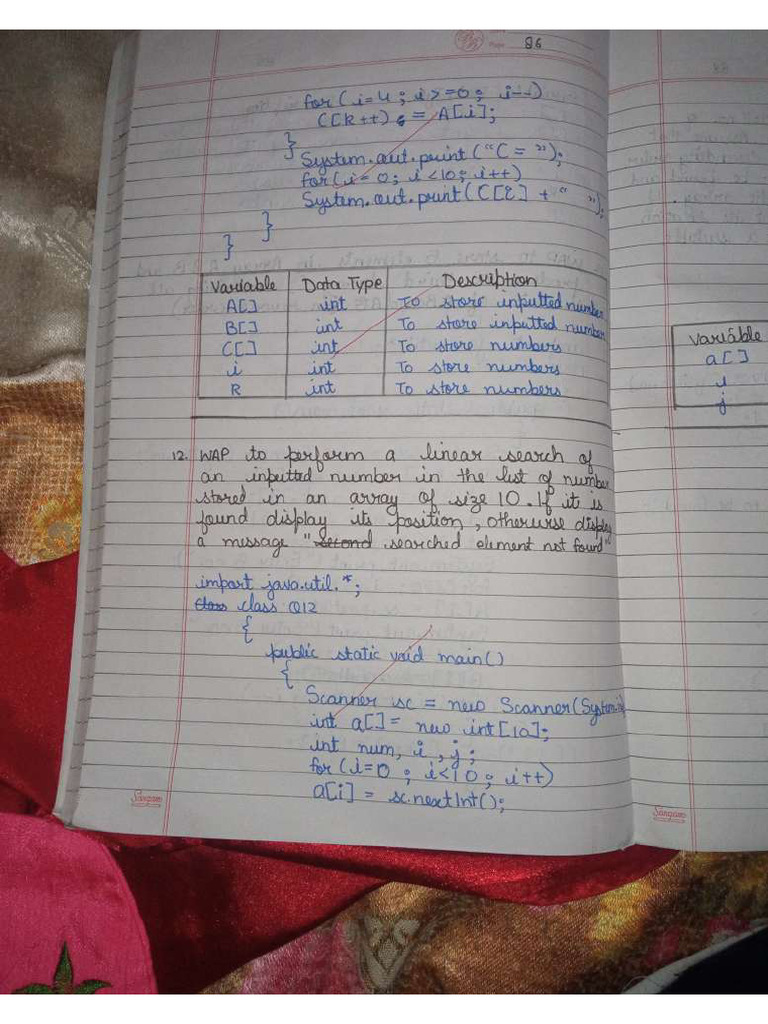 86
for(i=4 ; i>=0 ; i--)
C[k++] = A[i];
}
System.out.print("C = ");
for(i=0; i<10; i++)
System.out.print(C[i] + " ");
}
}
Variable Data Type Description
A[] int To store inputted number
B[] int To store inputted number
C[] int To store numbers
i int To store numbers
R int To store numbers
12. WAP to perform a linear search of
an inputted number in the list of number
stored in an array of size 10. If it is
found display its position, otherwise display
a message "second searched element not found"
import java.util.*;
class class Q12
{
public static void main()
{
Scanner sc = new Scanner(System.in)
int a[]= new int[10];
int num, i, j;
for(i=0 ; i<10 ; i++)
a[i] = sc.nextInt();
Sangam
Variable
a[]
i
j
Sangam